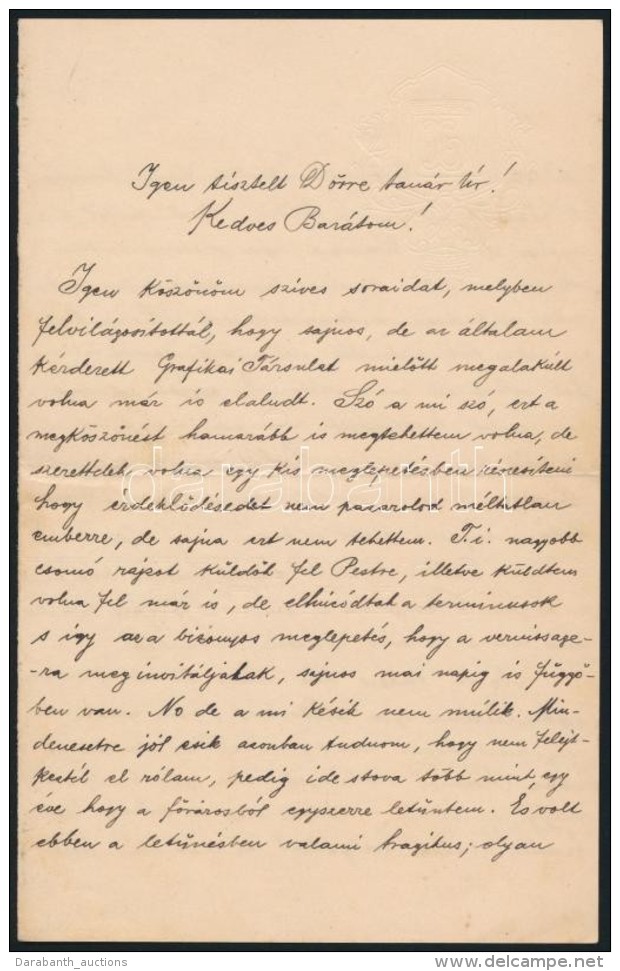 Igen tisztelt Dörre tanár Úr!
Kedves Barátom!
Igen köszönöm szives soraidat, melyben
felvilágosítottál, hogy sajnos, de az általam
kérdezett Grafikai Társulat mielőtt megalakúlt
volna már is elaludt. Szó a mi szó, ezt a
megköszönést hamarább is megtehettem volna, de
szerettelek volna egy kis meglepetésben részesíteni
hogy érdeklődésedet nem pazarolod méltatlan
emberre, de sajna ezt nem tehettem. T.i. nagyobb
csomó rajzot küldök fel Pestre, illetve küldtem
volna fel már is, de elhúzódtak a terminusok
s így az a bizonyos meglepetés, hogy a vernissage-
-ra meginvitáljalak, sajnos mai napig is függő-
ben van. No de a mi késik nem múlik. Min-
denesetre jól esik azonban tudnom, hogy nem felejt-
keztél el rólam, pedig ide stova több mint egy
éve hogy a fővárosból egyszerre letűntem. És volt
ebben a letűnésben valami tragikus; olyan
darabanth
Darabanth_auctions
www.delcampe.net